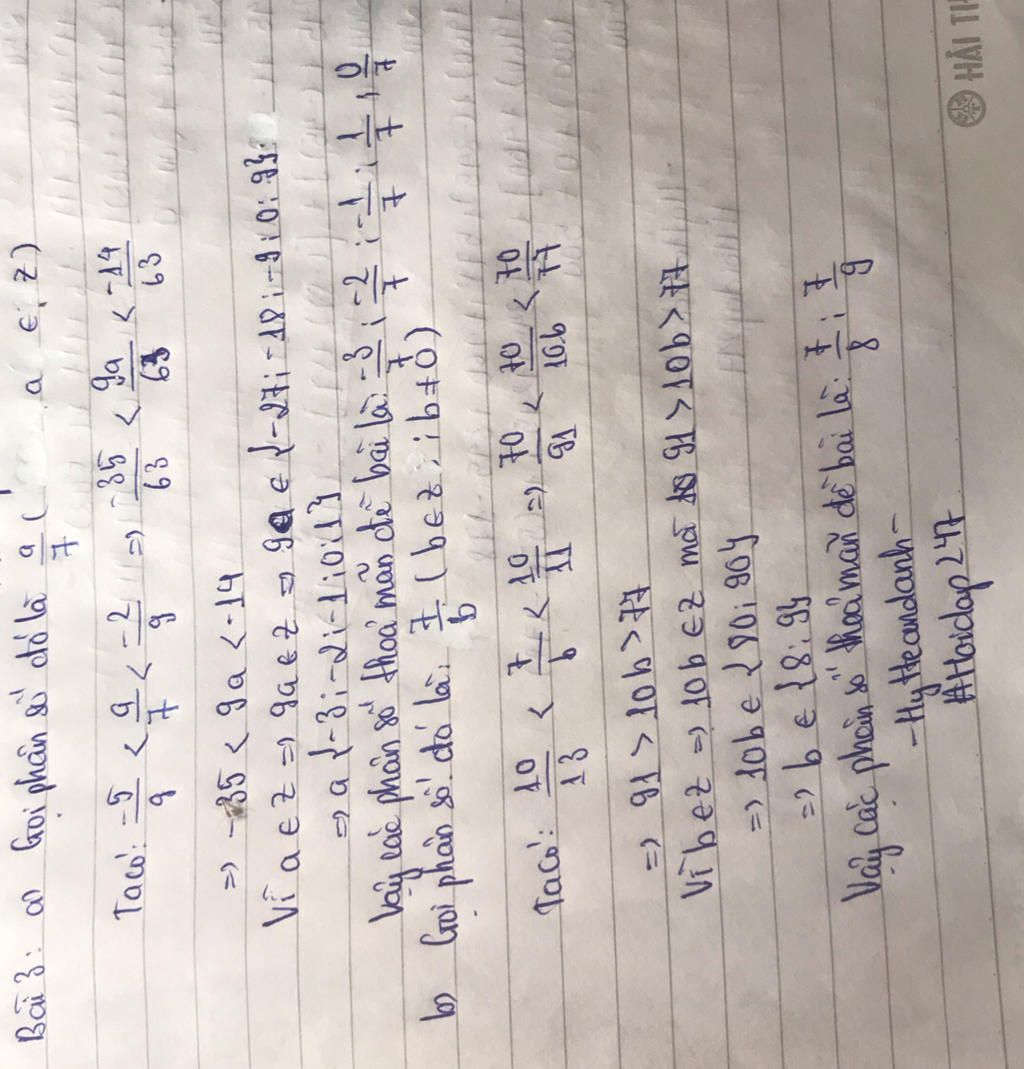 Bài 3: a) Gọi phân số đó là a/7 ( a ∈ Z)
Ta có: -5/9 < a/7 < -2/9 => -35/63 < 9a/63 < -14/63
=> -35 < 9a < -14
Vì a ∈ Z => 9a ∈ Z => 9a ∈ {-27; -18; -9; 0; 9}
=> a {-3; -2; -1; 0; 1}
Vậy các phân số thoả mãn đề bài là: -3/7; -2/7; -1/7; 1/7; 0/7
b) Gọi phân số đó là: 7/b ( b ∈ Z; b ≠ 0)
Ta có: 10/13 < 7/b < 10/11 => 70/91 < 70/10b < 70/77
=> 91 > 10b > 77
Vì b ∈ Z => 10b ∈ Z mà 91 > 10b > 77
=> 10b ∈ {80; 90}
=> b ∈ {8; 9}
Vậy các phân số thoả mãn đề bài là: 7/8; 7/9
-HyHeandanh-
#Hoidap247
HẢI TI